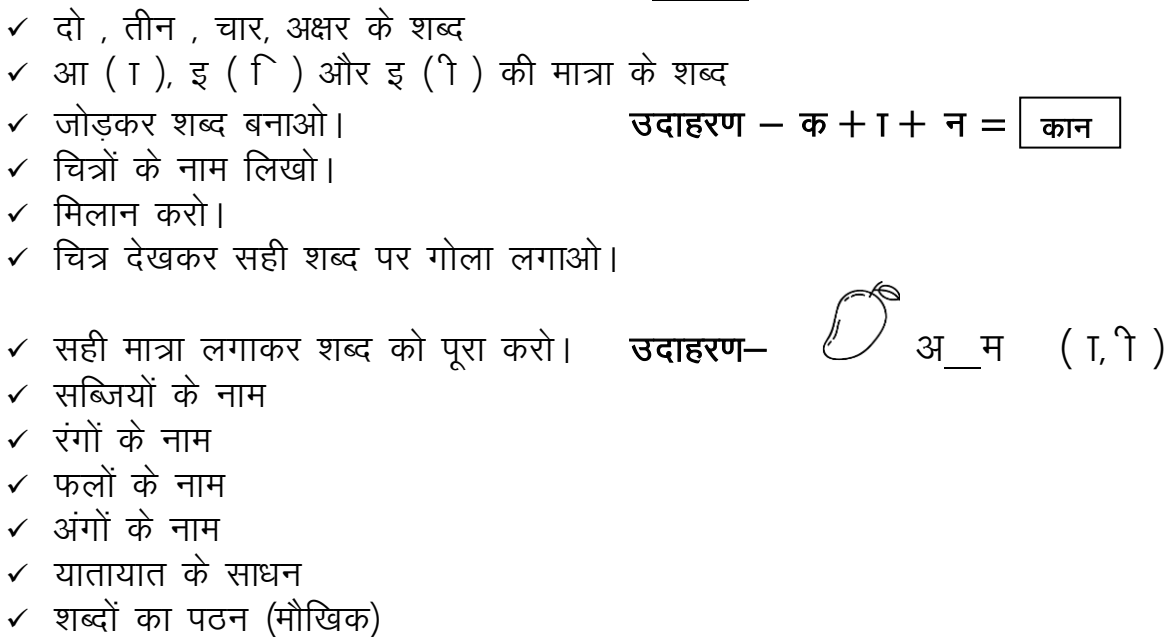 ✓ दो , तीन , चार, अक्षर के शब्द
✓ आ ( ा ), इ ( ि ) और इ ( ी ) की मात्रा के शब्द
✓ जोड़कर शब्द बनाओ। उदाहरण – क + ा + न = कान
✓ चित्रों के नाम लिखो।
✓ मिलान करो।
✓ चित्र देखकर सही शब्द पर गोला लगाओ।
✓ सही मात्रा लगाकर शब्द को पूरा करो। उदाहरण– अ__म ( ा, ी )
✓ सब्जियों के नाम
✓ रंगों के नाम
✓ फलों के नाम
✓ अंगों के नाम
✓ यातायात के साधन
✓ शब्दों का पठन (मौखिक)